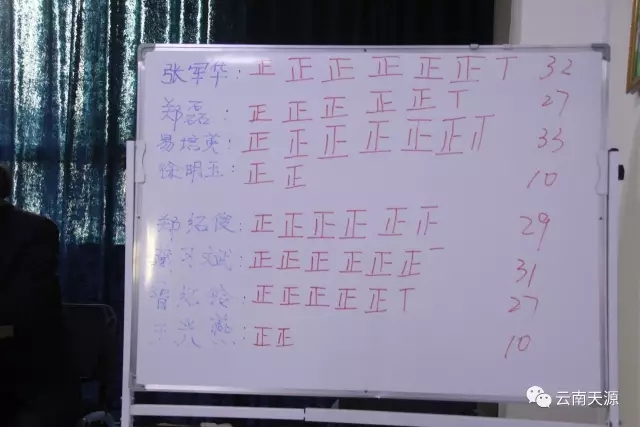 张军华: 正 正 正 正 正 正 T 32
郑磊: 正 正 正 正 正 T 27
易培英: 正 正 正 正 正 正 33
徐明玉: 正 正 10
郑绍俊: 正 正 正 正 正 29
正 正 正 正 正 正 一 31
正 正 正 正 正 T 27
燕: 正 正 10
云南天源